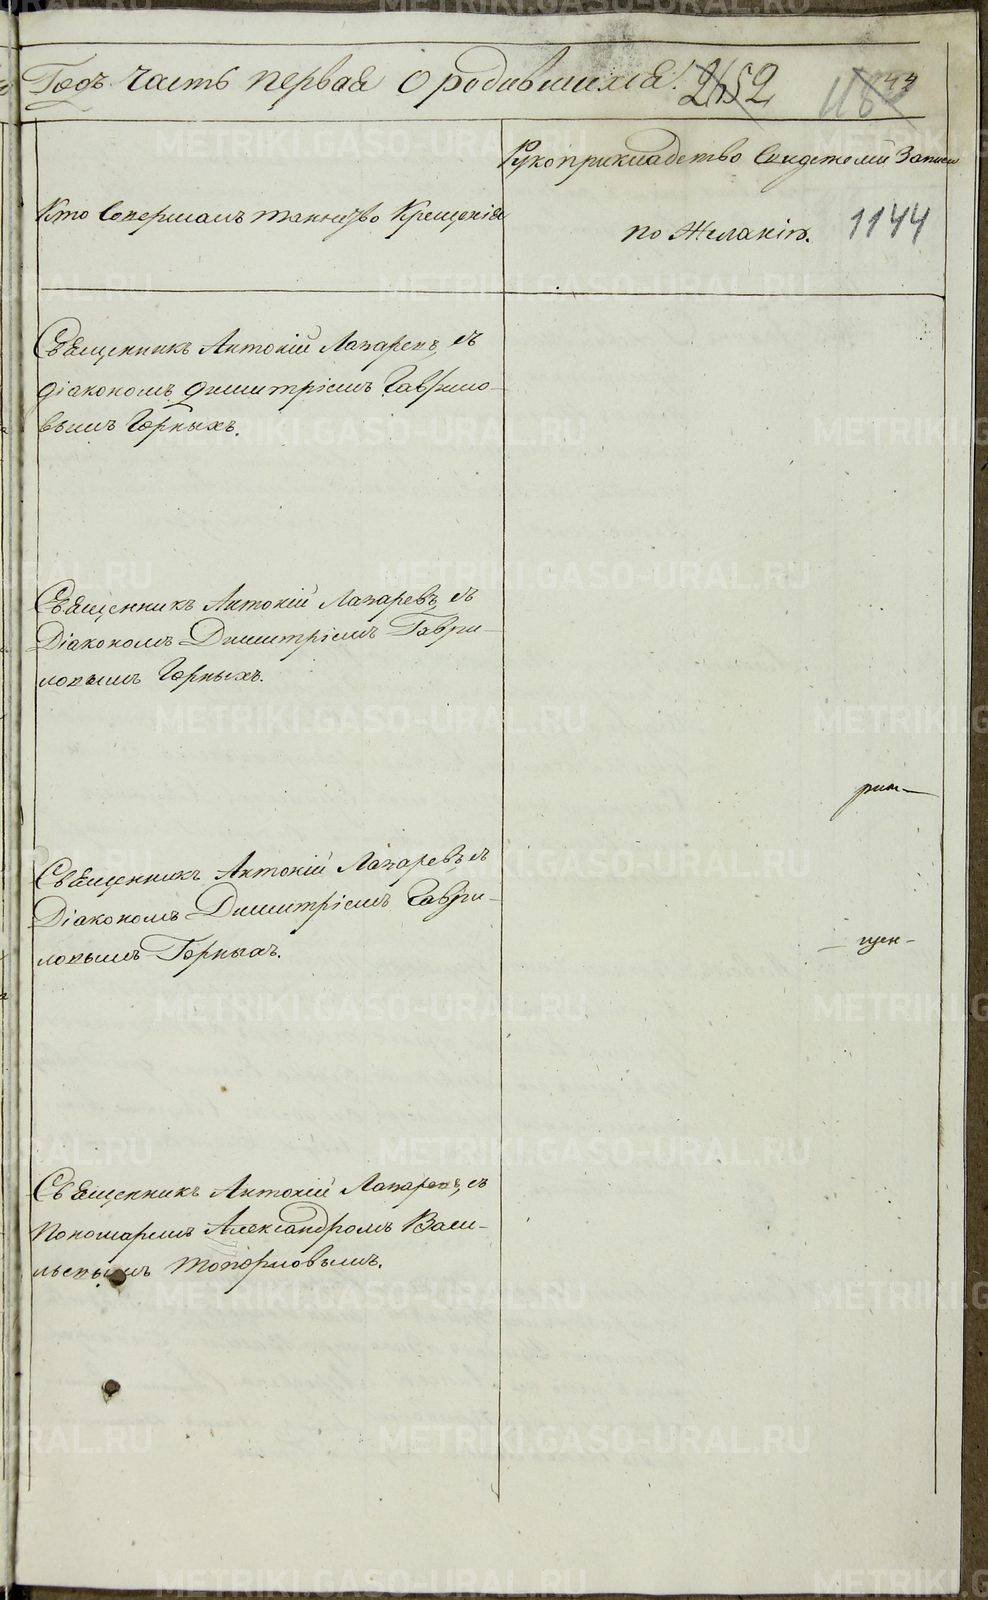 Годъ часть первая О родившихся. 2452
44
Рукоприкладство Свидетелей Записи
Кто Совершалъ таинство Крещенія
по Желанію. 1144
Священникъ Антоній Лазаревъ, съ
діакономъ димитріемъ Гаврило-
вымъ Горныхъ.
Священникъ Антоній Лазаревъ, съ
Діакономъ Димитріемъ Гаври-
ловымъ Горныхъ.
Священникъ Антоній Лазаревъ, съ
Діакономъ Димитріемъ Гаври-
ловымъ Горныхъ.
Священникъ Антоній Лазаревъ, съ
Пономаремъ Александромъ Васи-
льевымъ Топорковымъ.
METRIKI.GASO-URAL.RU